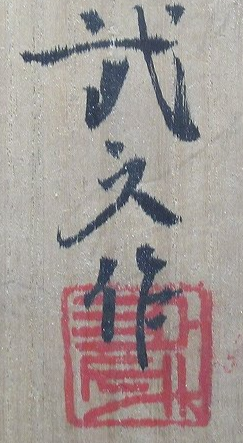 武久作